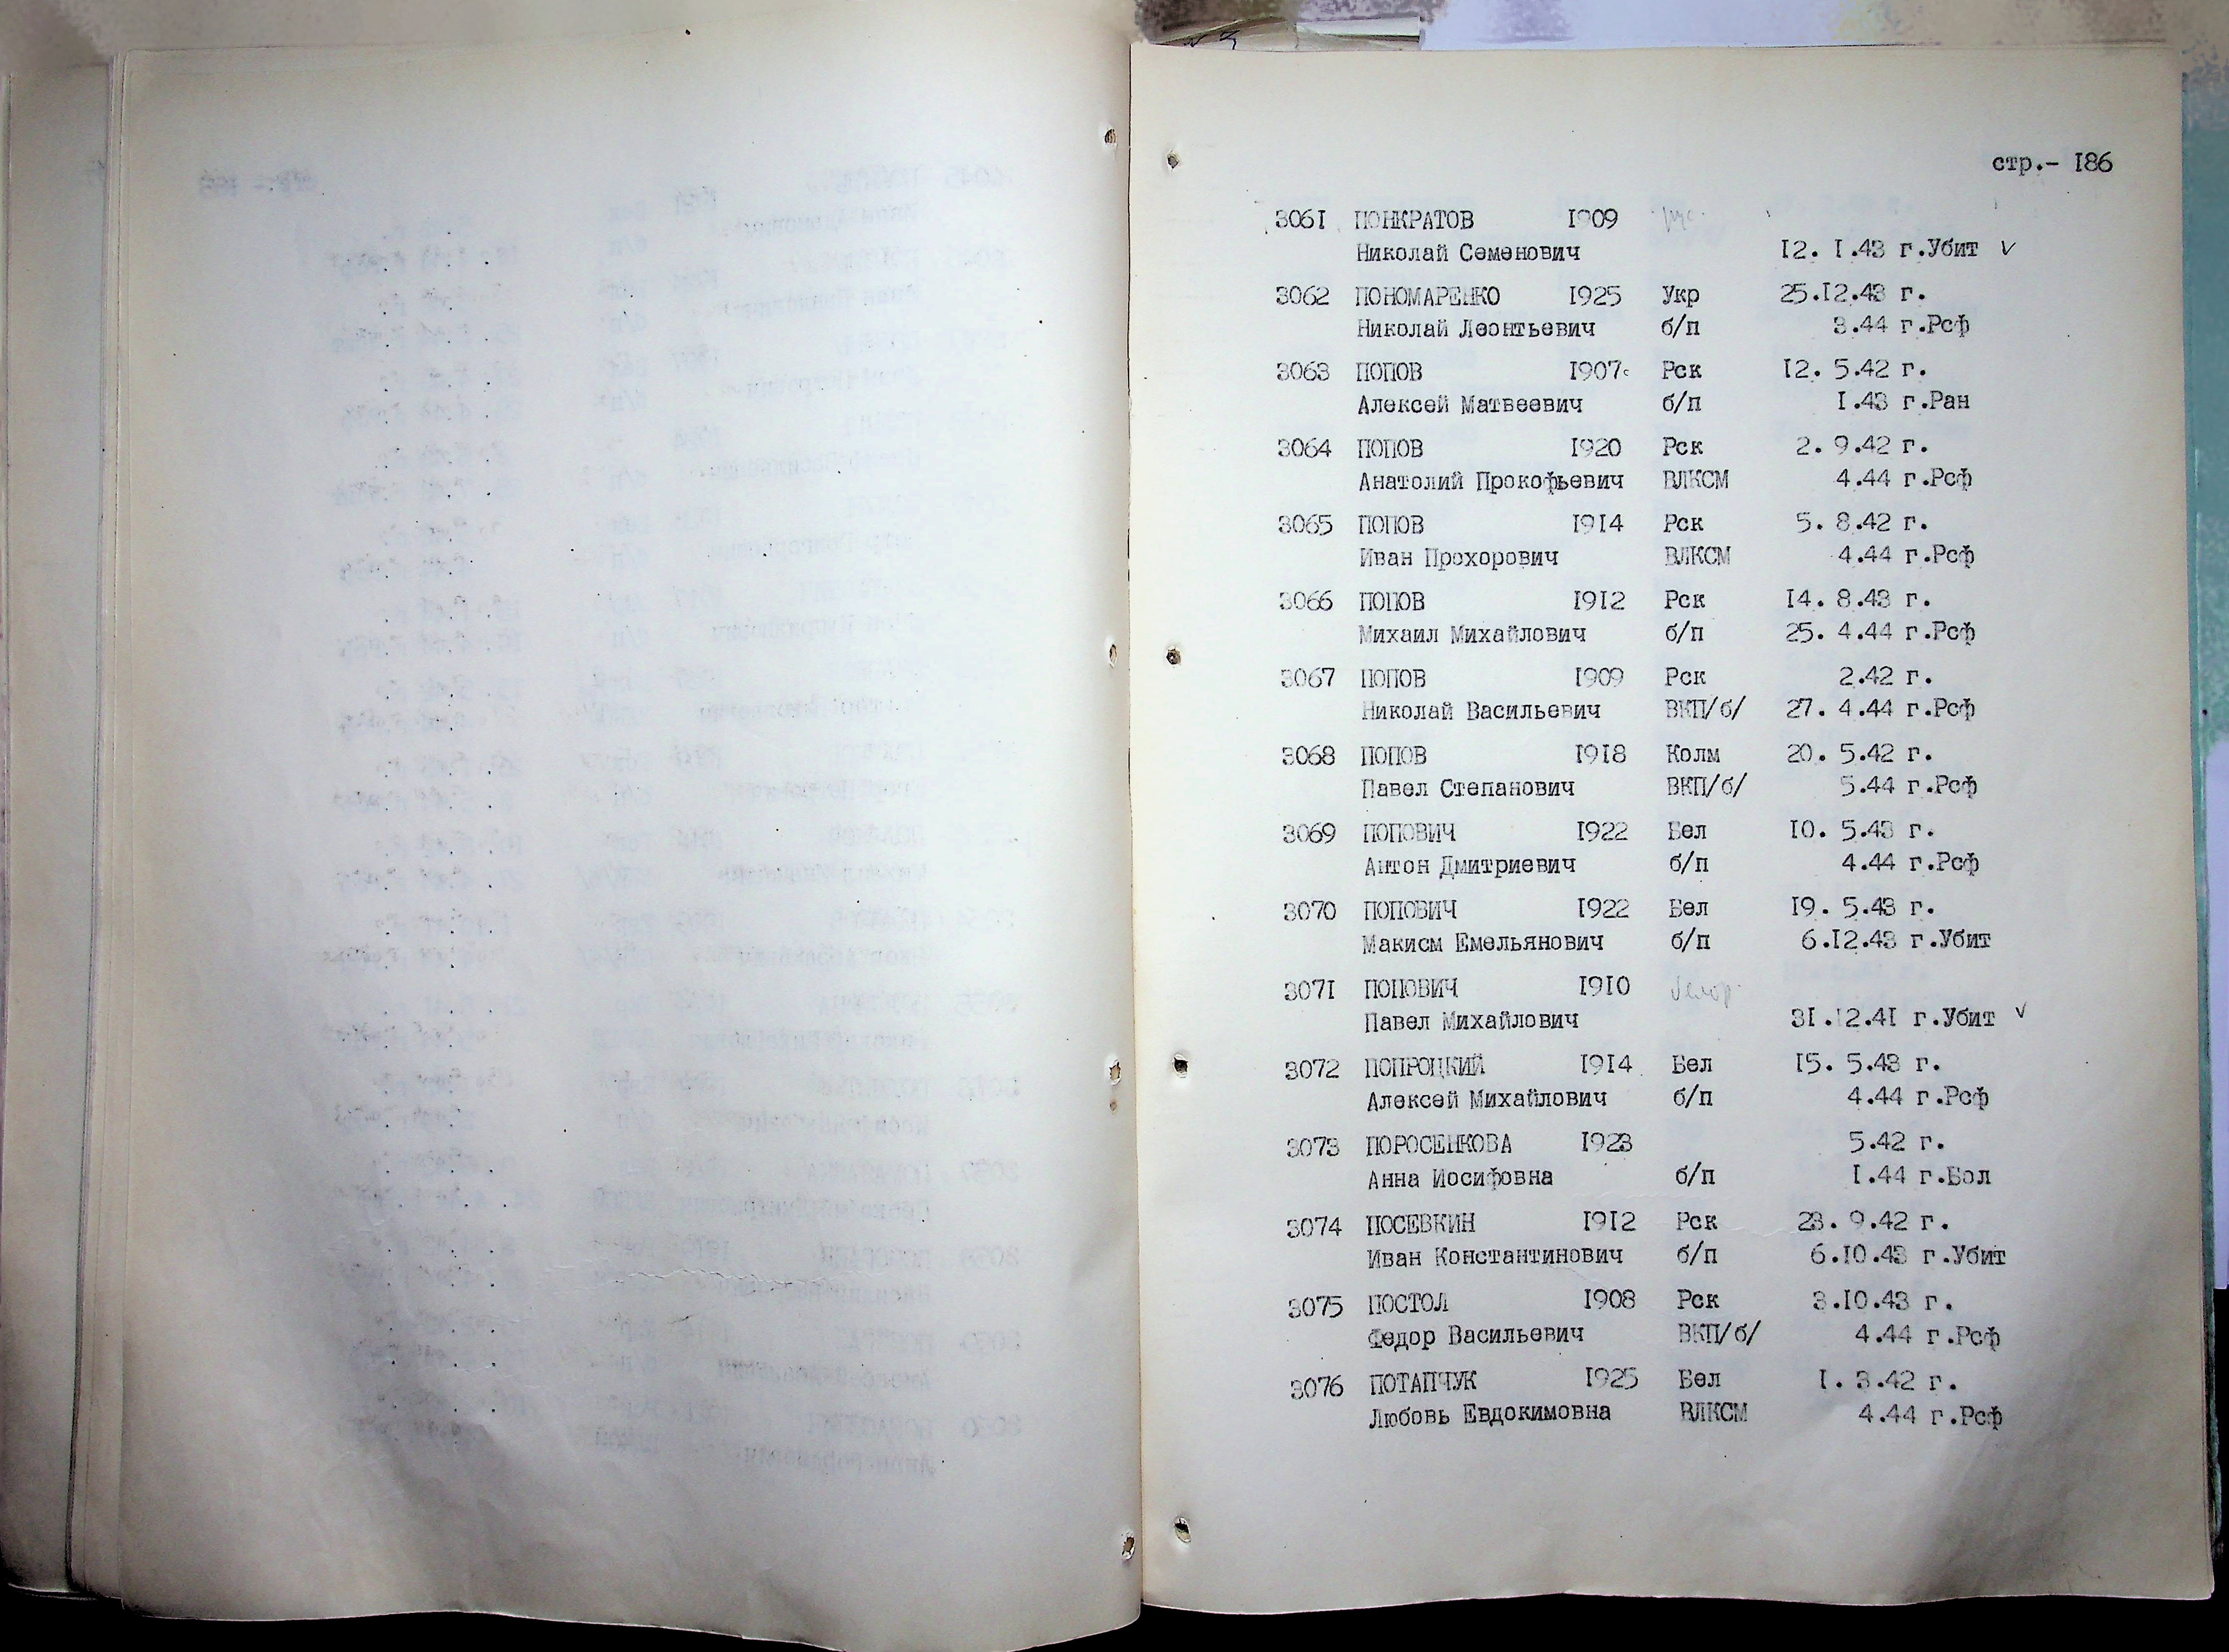 стр.- I86
3061 ПОНКРАТОВ I909 рус.
Николай Семенович I2. I.43 г.Убит ✓
3062 ПОНОМАРЕНКО I925 Укр 25.I2.43 г.
Николай Леонтьевич б/п 3.44 г.Рсф
3063 ПОПОВ I907 Рск I2. 5.42 г.
Алексей Матвеевич б/п I.43 г.Ран
3064 ПОПОВ I920 Рск 2. 9.42 г.
Анатолий Прокофьевич ВЛКСМ 4.44 г.Рсф
3065 ПОПОВ I9I4 Рск 5. 8.42 г.
Иван Прохорович ВЛКСМ 4.44 г.Рсф
3066 ПОПОВ I9I2 Рск I4. 8.43 г.
Михаил Михайлович б/п 25. 4.44 г.Рсф
3067 ПОПОВ I909 Рск 2.42 г.
Николай Васильевич ВКП/б/ 27. 4.44 г.Рсф
3068 ПОПОВ I9I8 Колм 20. 5.42 г.
Павел Степанович ВКП/б/ 5.44 г.Рсф
3069 ПОПОВИЧ I922 Бел I0. 5.43 г.
Антон Дмитриевич б/п 4.44 г.Рсф
3070 ПОПОВИЧ I922 Бел I9. 5.43 г.
Макисм Емельянович б/п 6.I2.43 г.Убит
307I ПОПОВИЧ I9I0 белор.
Павел Михайлович 3I.I2.4I г.Убит ✓
3072 ПОПРОЦКИЙ I9I4 Бел I5. 5.43 г.
Алексей Михайлович б/п 4.44 г.Рсф
3073 ПОРОСЕНКОВА I923 5.42 г.
Анна Иосифовна б/п I.44 г.Бол
3074 ПОСЕВКИН I9I2 Рск 23. 9.42 г.
Иван Константинович б/п 6.I0.43 г.Убит
3075 ПОСТОЛ I908 Рск 3.I0.43 г.
Федор Васильевич ВКП/б/ 4.44 г.Рсф
3076 ПОТАПЧУК I925 Бел I. 3.42 г.
Любовь Евдокимовна ВЛКСМ 4.44 г.Рсф